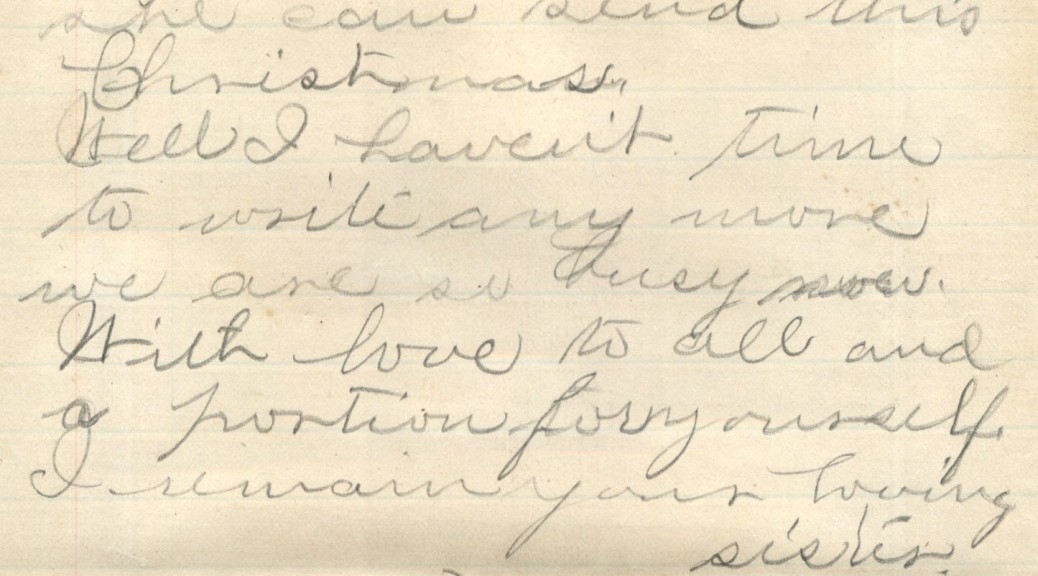 she can send this
Christmas.
Well I haven't time
to write any more
we are so busy now.
With love to all and
a portion for yourself.
I remain your loving
sister.